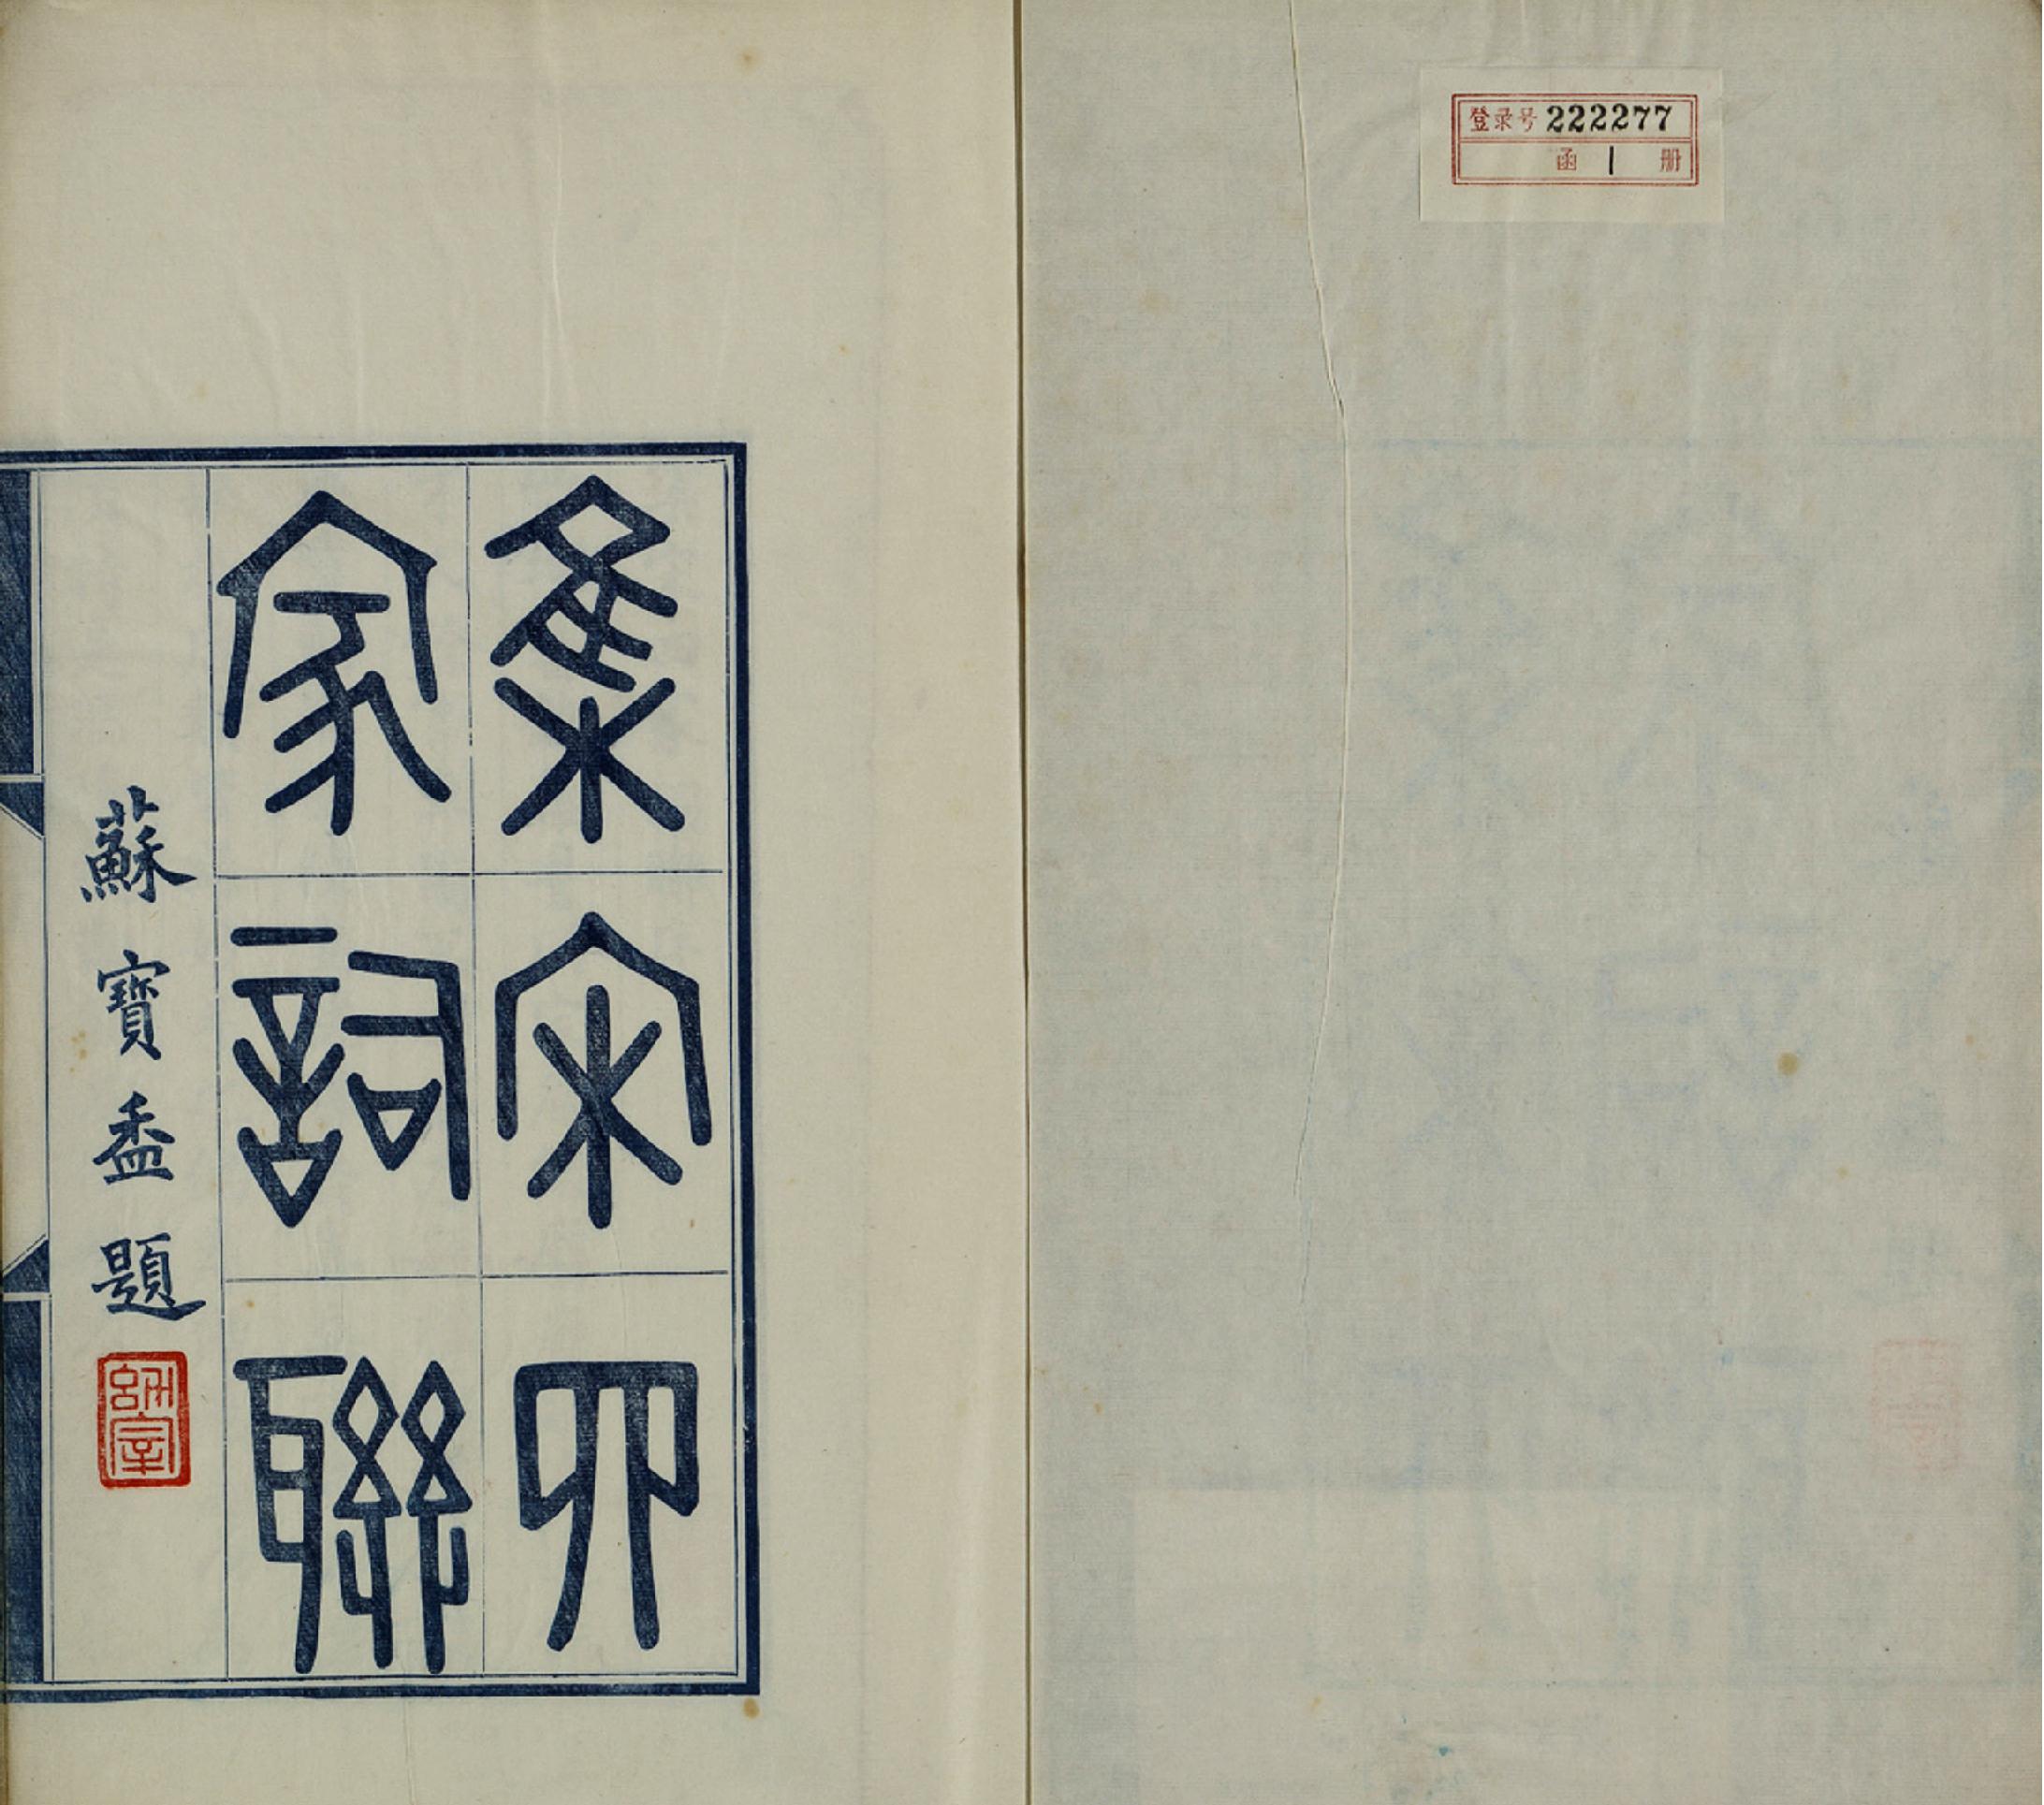 登录号 222277
函 1 册
集宋四
家詞聯
蘇寶盉題